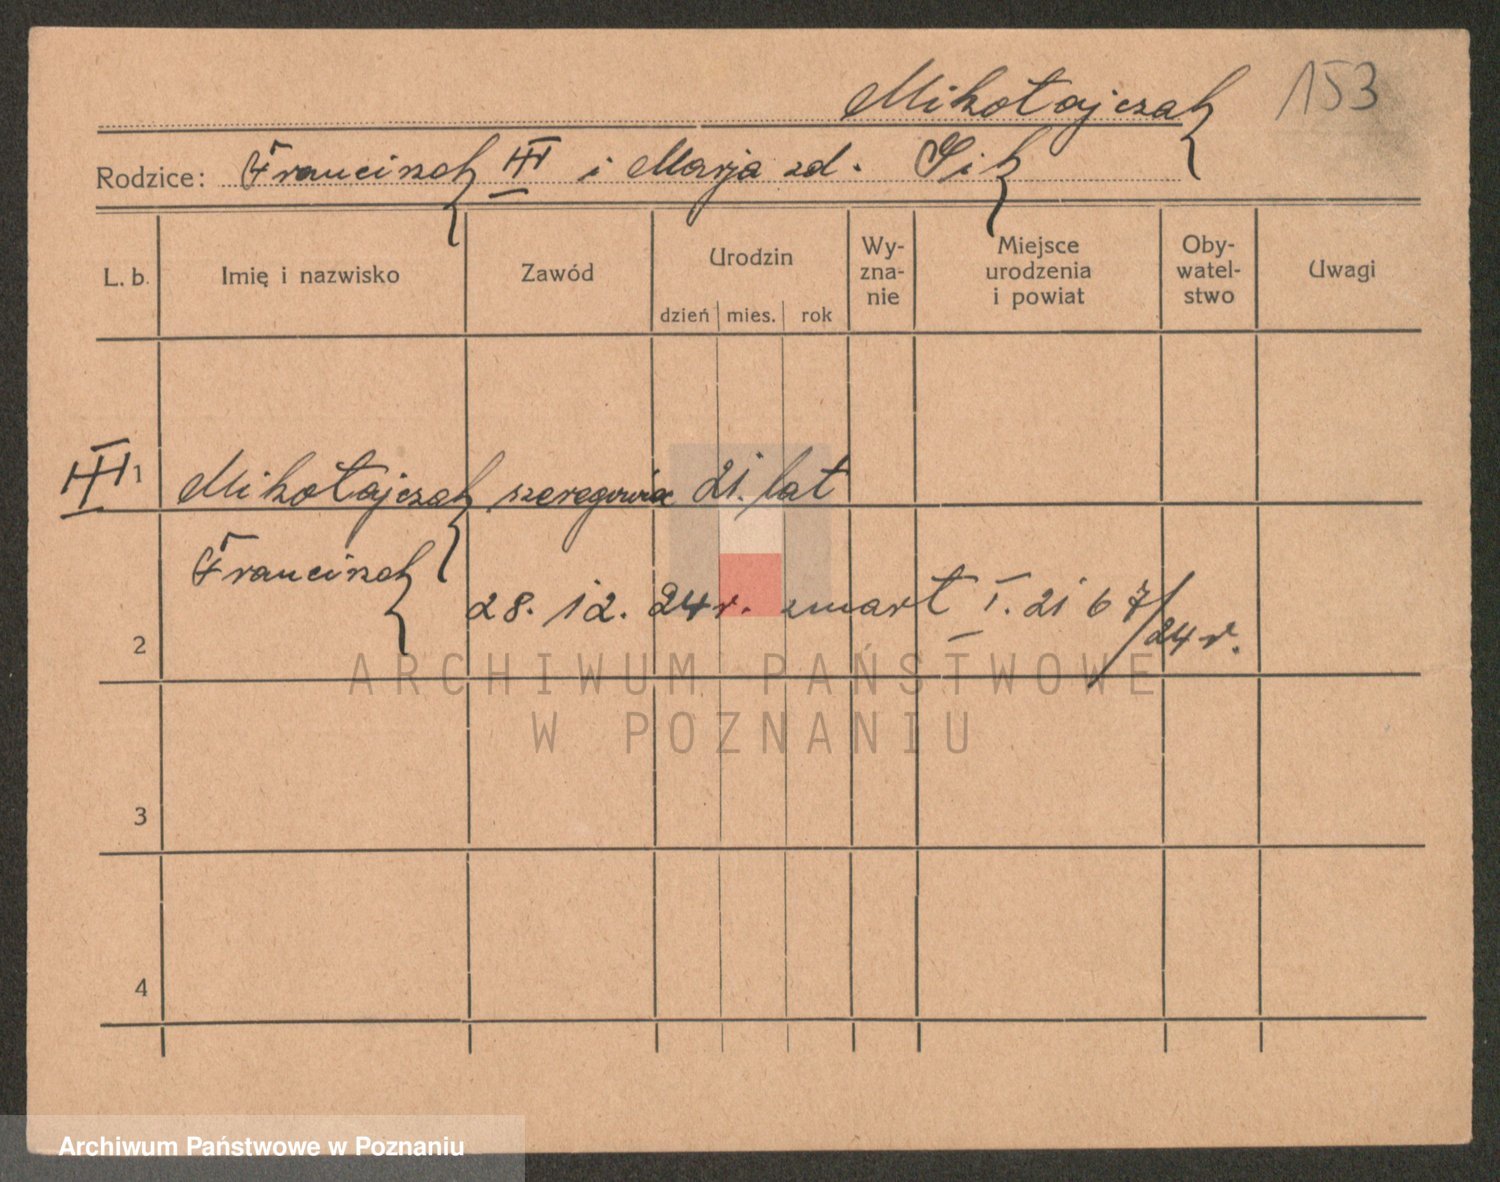 Mikołajczak 153
Rodzice: Franciszek i Marja zd. Sik
L. b. Imię i nazwisko Zawód Urodzin dzień mies. rok Wy-zna-nie Miejsce urodzenia i powiat Oby-watel-stwo Uwagi
1 Mikołajczak szeregowiec 21. lat
Franciszek
28. 12. 24 r. zmarł I. 21 67/24 r.
2
ARCHIWUM PAŃSTWOWE
W POZNANIU
3
4
Archiwum Państwowe w Poznaniu